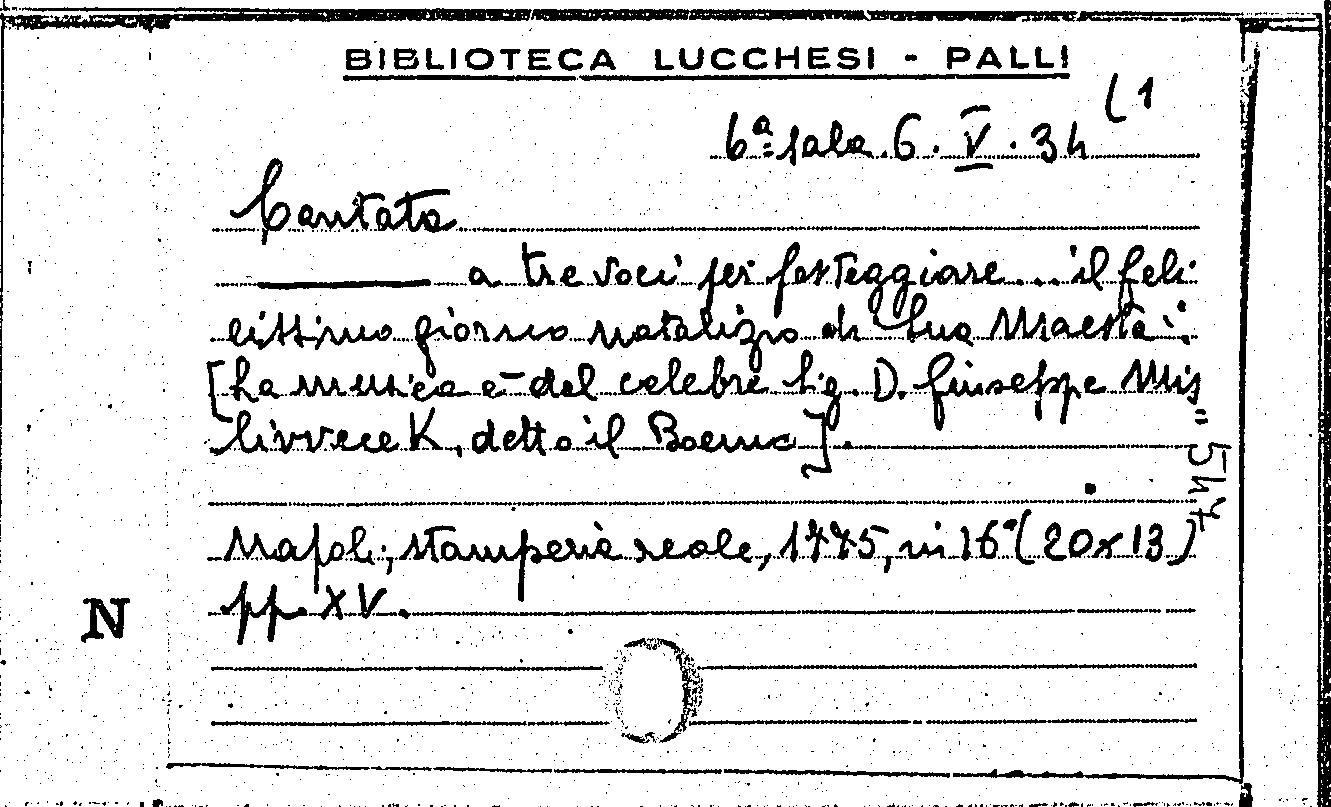 BIBLIOTECA LUCCHESI - PALLI
6ª sala. 6. V. 34 (1
Cantata
——— a tre voci per festeggiare... il feli
cissimo giorno natalizio di Sua Maestà..
[La musica è del celebre Sig. D. Giuseppe Mis
livvecek, detto il Boemo].
547
Napoli, stamperia reale, 1775, in 16° (20x13)
pp. XV.
N